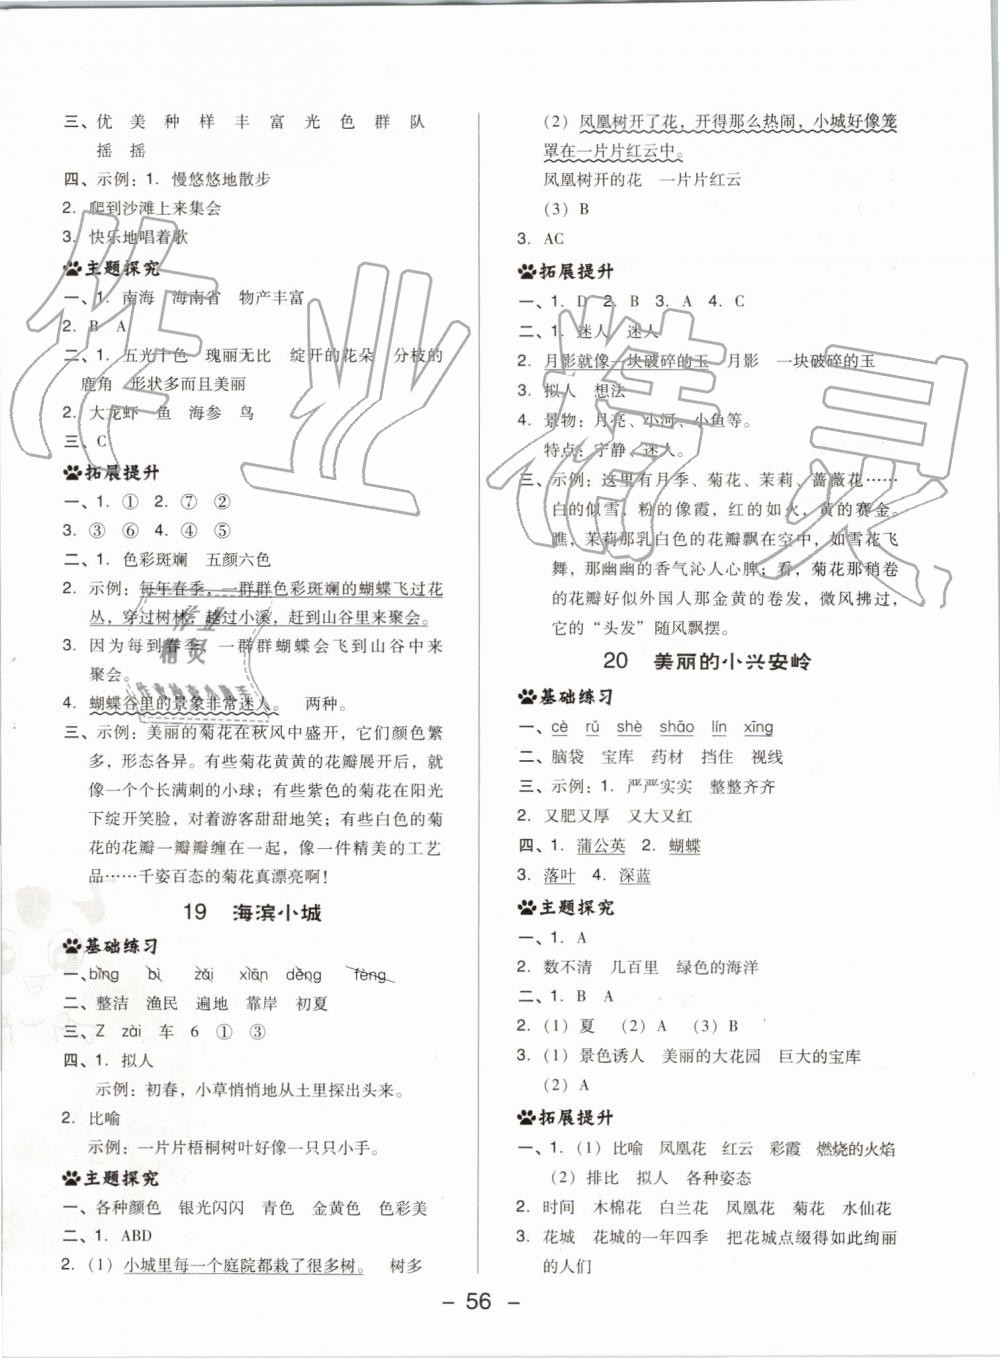 三、优 美 种 样 丰 富 光 色 群 队
摇 摇
四、示例：1. 慢悠悠地散步
2. 爬到沙滩上来集会
3. 快乐地唱着歌
主题探究
一、1. 南海 海南省 物产丰富
2. B A
二、1. 五光十色 瑰丽无比 绽开的花朵 分枝的
鹿角 形状多而且美丽
2. 大龙虾 鱼 海参 鸟
三、C
拓展提升
一、1. ① 2. ⑦ ②
3. ③ ⑥ 4. ④ ⑤
二、1. 色彩斑斓 五颜六色
2. 示例：每年春季，一群群色彩斑斓的蝴蝶飞过花
丛，穿过树林，越过小溪，赶到山谷里来聚会。
3. 因为每到春季，一群群蝴蝶会飞到山谷中来
聚会。
4. 蝴蝶谷里的景象非常迷人。 两种。
三、示例：美丽的菊花在秋风中盛开，它们颜色繁
多，形态各异。有些菊花黄黄的花瓣展开后，就
像一个个长满刺的小球；有些紫色的菊花在阳光
下绽开笑脸，对着游客甜甜地笑；有些白色的菊
花的花瓣一瓣瓣缠在一起，像一件精美的工艺
品……千姿百态的菊花真漂亮啊！
19 海滨小城
基础练习
一、bīng bì zǎi xiān děng fèng
二、整洁 渔民 遍地 靠岸 初夏
三、Z zài 车 6 ① ③
四、1. 拟人
示例：初春，小草悄悄地从土里探出头来。
2. 比喻
示例：一片片梧桐树叶好像一只只小手。
主题探究
一、各种颜色 银光闪闪 青色 金黄色 色彩美
二、1. ABD
2.（1）小城里每一个庭院都栽了很多树。 树多
（2）凤凰树开了花，开得那么热闹，小城好像笼
罩在一片片红云中。
凤凰树开的花 一片片红云
（3）B
3. AC
拓展提升
一、1. D 2. B 3. A 4. C
二、1. 迷人 迷人
2. 月影就像一块破碎的玉 月影 一块破碎的玉
3. 拟人 想法
4. 景物：月亮、小河、小鱼等。
特点：宁静、迷人。
三、示例：这里有月季、菊花、茉莉、蔷薇花……
白的似雪，粉的像霞，红的如火，黄的赛金。
瞧，茉莉那乳白色的花瓣飘在空中，如雪花飞
舞，那幽幽的香气沁人心脾；看，菊花那稍卷
的花瓣好似外国人那金黄的卷发，微风拂过，
它的“头发”随风飘摆。
20 美丽的小兴安岭
基础练习
一、cè rǔ shè shāo lín xīng
二、脑袋 宝库 药材 挡住 视线
三、示例：1. 严严实实 整整齐齐
2. 又肥又厚 又大又红
四、1. 蒲公英 2. 蝴蝶
3. 落叶 4. 深蓝
主题探究
一、1. A
2. 数不清 几百里 绿色的海洋
二、1. B A
2.（1）夏 （2）A （3）B
3.（1）景色诱人 美丽的大花园 巨大的宝库
（2）A
拓展提升
一、1.（1）比喻 凤凰花 红云 彩霞 燃烧的火焰
（2）排比 拟人 各种姿态
2. 时间 木棉花 白兰花 凤凰花 菊花 水仙花
3. 花城 花城的一年四季 把花城点缀得如此绚丽
的人们
- 56 -
作业精灵
作业
精灵